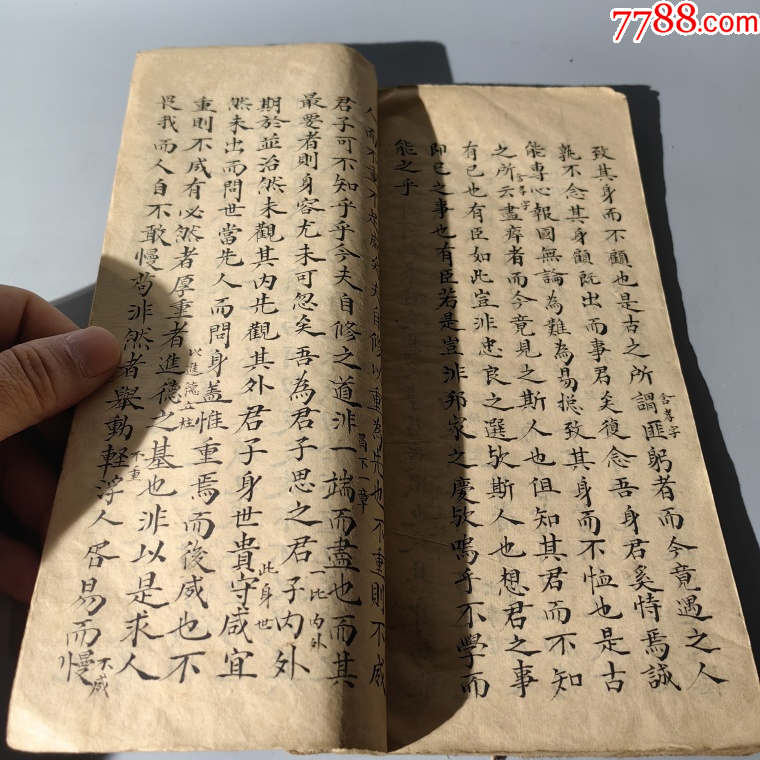 7788.com
致其身而不顧也是古之所謂匪躬者而今竟遇之人
含孝字
孰不念其身顧既出而事君矣復念吾身君奚恃焉誠
能專心報國無論為難為易摠致其身而不恤也是古
之所云盡瘁者而今竟見之斯人也但知其君而不知
含子字
有已也有臣如此豈非忠良之選歟斯人也想君之事
即已之事也有臣若是豈非邦家之慶歟嗚乎不學而
能之乎
人而不重不威矣夫自修以重為先也不重則不威
君子可不知乎乎今夫自修之道非一端而盡也而其
冐下一章
最要者則身容尤未可忽矣吾為君子思之君子內外
一比內外
期於並治然未觀其內先觀其外君子身世貴守咸宜
此身世
然未出而問世當先人而問身蓋惟重焉而後威也不
重則不威有必然者厚重者進德之基也非以是求人
以進德立柱
畏我而人自不敢慢苟非然者舉動輕浮人啚易而慢
不重
不威